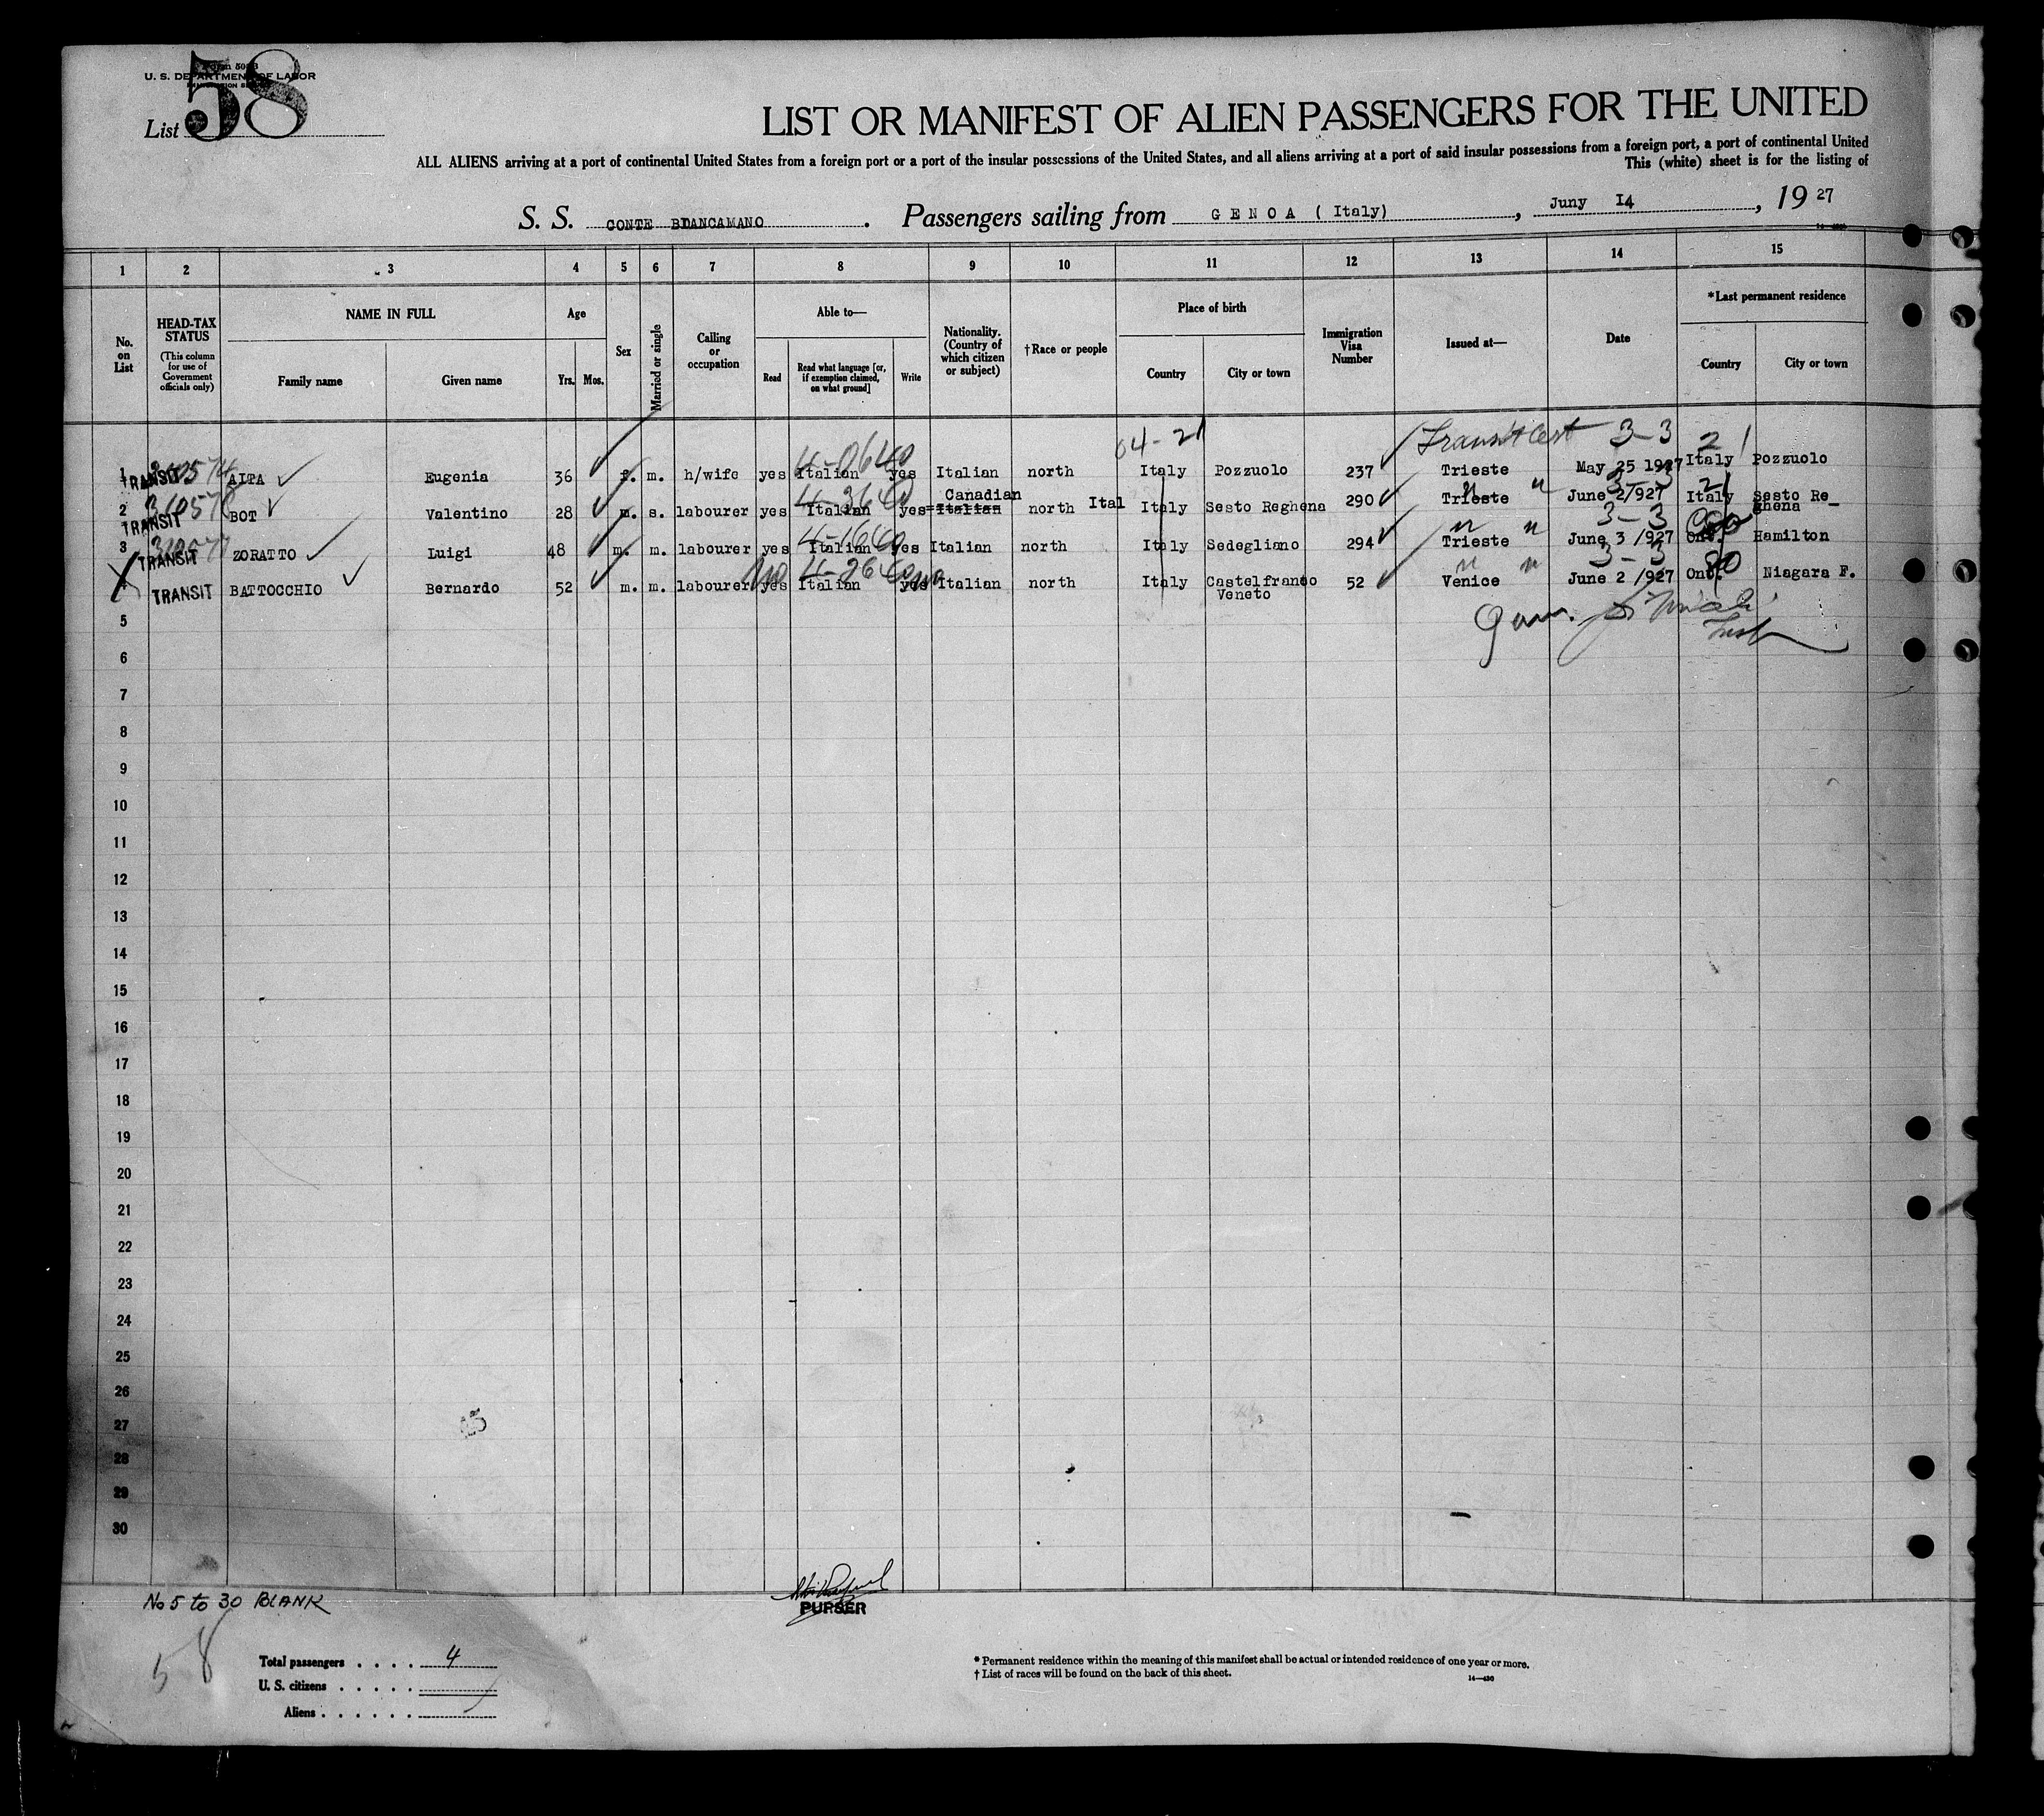 58
Form 500B
U. S. DEPARTMENT OF LABOR
List
LIST OR MANIFEST OF ALIEN PASSENGERS FOR THE UNITED
ALL ALIENS arriving at a port of continental United States from a foreign port or a port of the insular possessions of the United States, and all aliens arriving at a port of said insular possessions from a foreign port, a port of continental United
This (white) sheet is for the listing of
S. S. CONTE BIANCAMANO. Passengers sailing from GENOA ( Italy), Juny 14, 19 27
1 2 3 4 5 6 7 8 9 10 11 12 13 14 15
No. on List
HEAD-TAX STATUS (This column for use of Government officials only)
NAME IN FULL
Family name Given name
Age
Yrs. Mos.
Sex
Married or single
Calling or occupation
Able to—
Read Read what language [or, if exemption claimed, on what ground] Write
Nationality. (Country of which citizen or subject)
†Race or people
Place of birth
Country City or town
Immigration Visa Number
Issued at—
Date
*Last permanent residence
Country City or town
04-21 Transit Cert 3-3 21
1 TRANSIT AITA Eugenia 36 f. m. h/wife yes Italian yes Italian north Italy Pozzuolo 237 Trieste May 25 1927 Italy Pozzuolo
Canadian
2 TRANSIT BOT Valentino 28 m. s. labourer yes Italian yes Italian north Ital Italy Sesto Reghena 290 Trieste June 2/927 Italy Sesto Reghena
3 TRANSIT ZORATTO Luigi 48 m. m. labourer yes Italian yes Italian north Italy Sedegliano 294 Trieste June 3 /927 Ont. Hamilton
4 TRANSIT BATTOCCHIO Bernardo 52 m. m. labourer yes Italian yes Italian north Italy Castelfranco Veneto 52 Venice June 2 /927 Ont. Niagara F.
5
6
7
8
9
10
11
12
13
14
15
16
17
18
19
20
21
22
23
24
25
26
27
28
29
30
No 5 to 30 BLANK
PURSER
58
Total passengers . . . . 4
U. S. citizens . . . . .
Aliens . . . . . .
* Permanent residence within the meaning of this manifest shall be actual or intended residence of one year or more.
† List of races will be found on the back of this sheet.
14—430